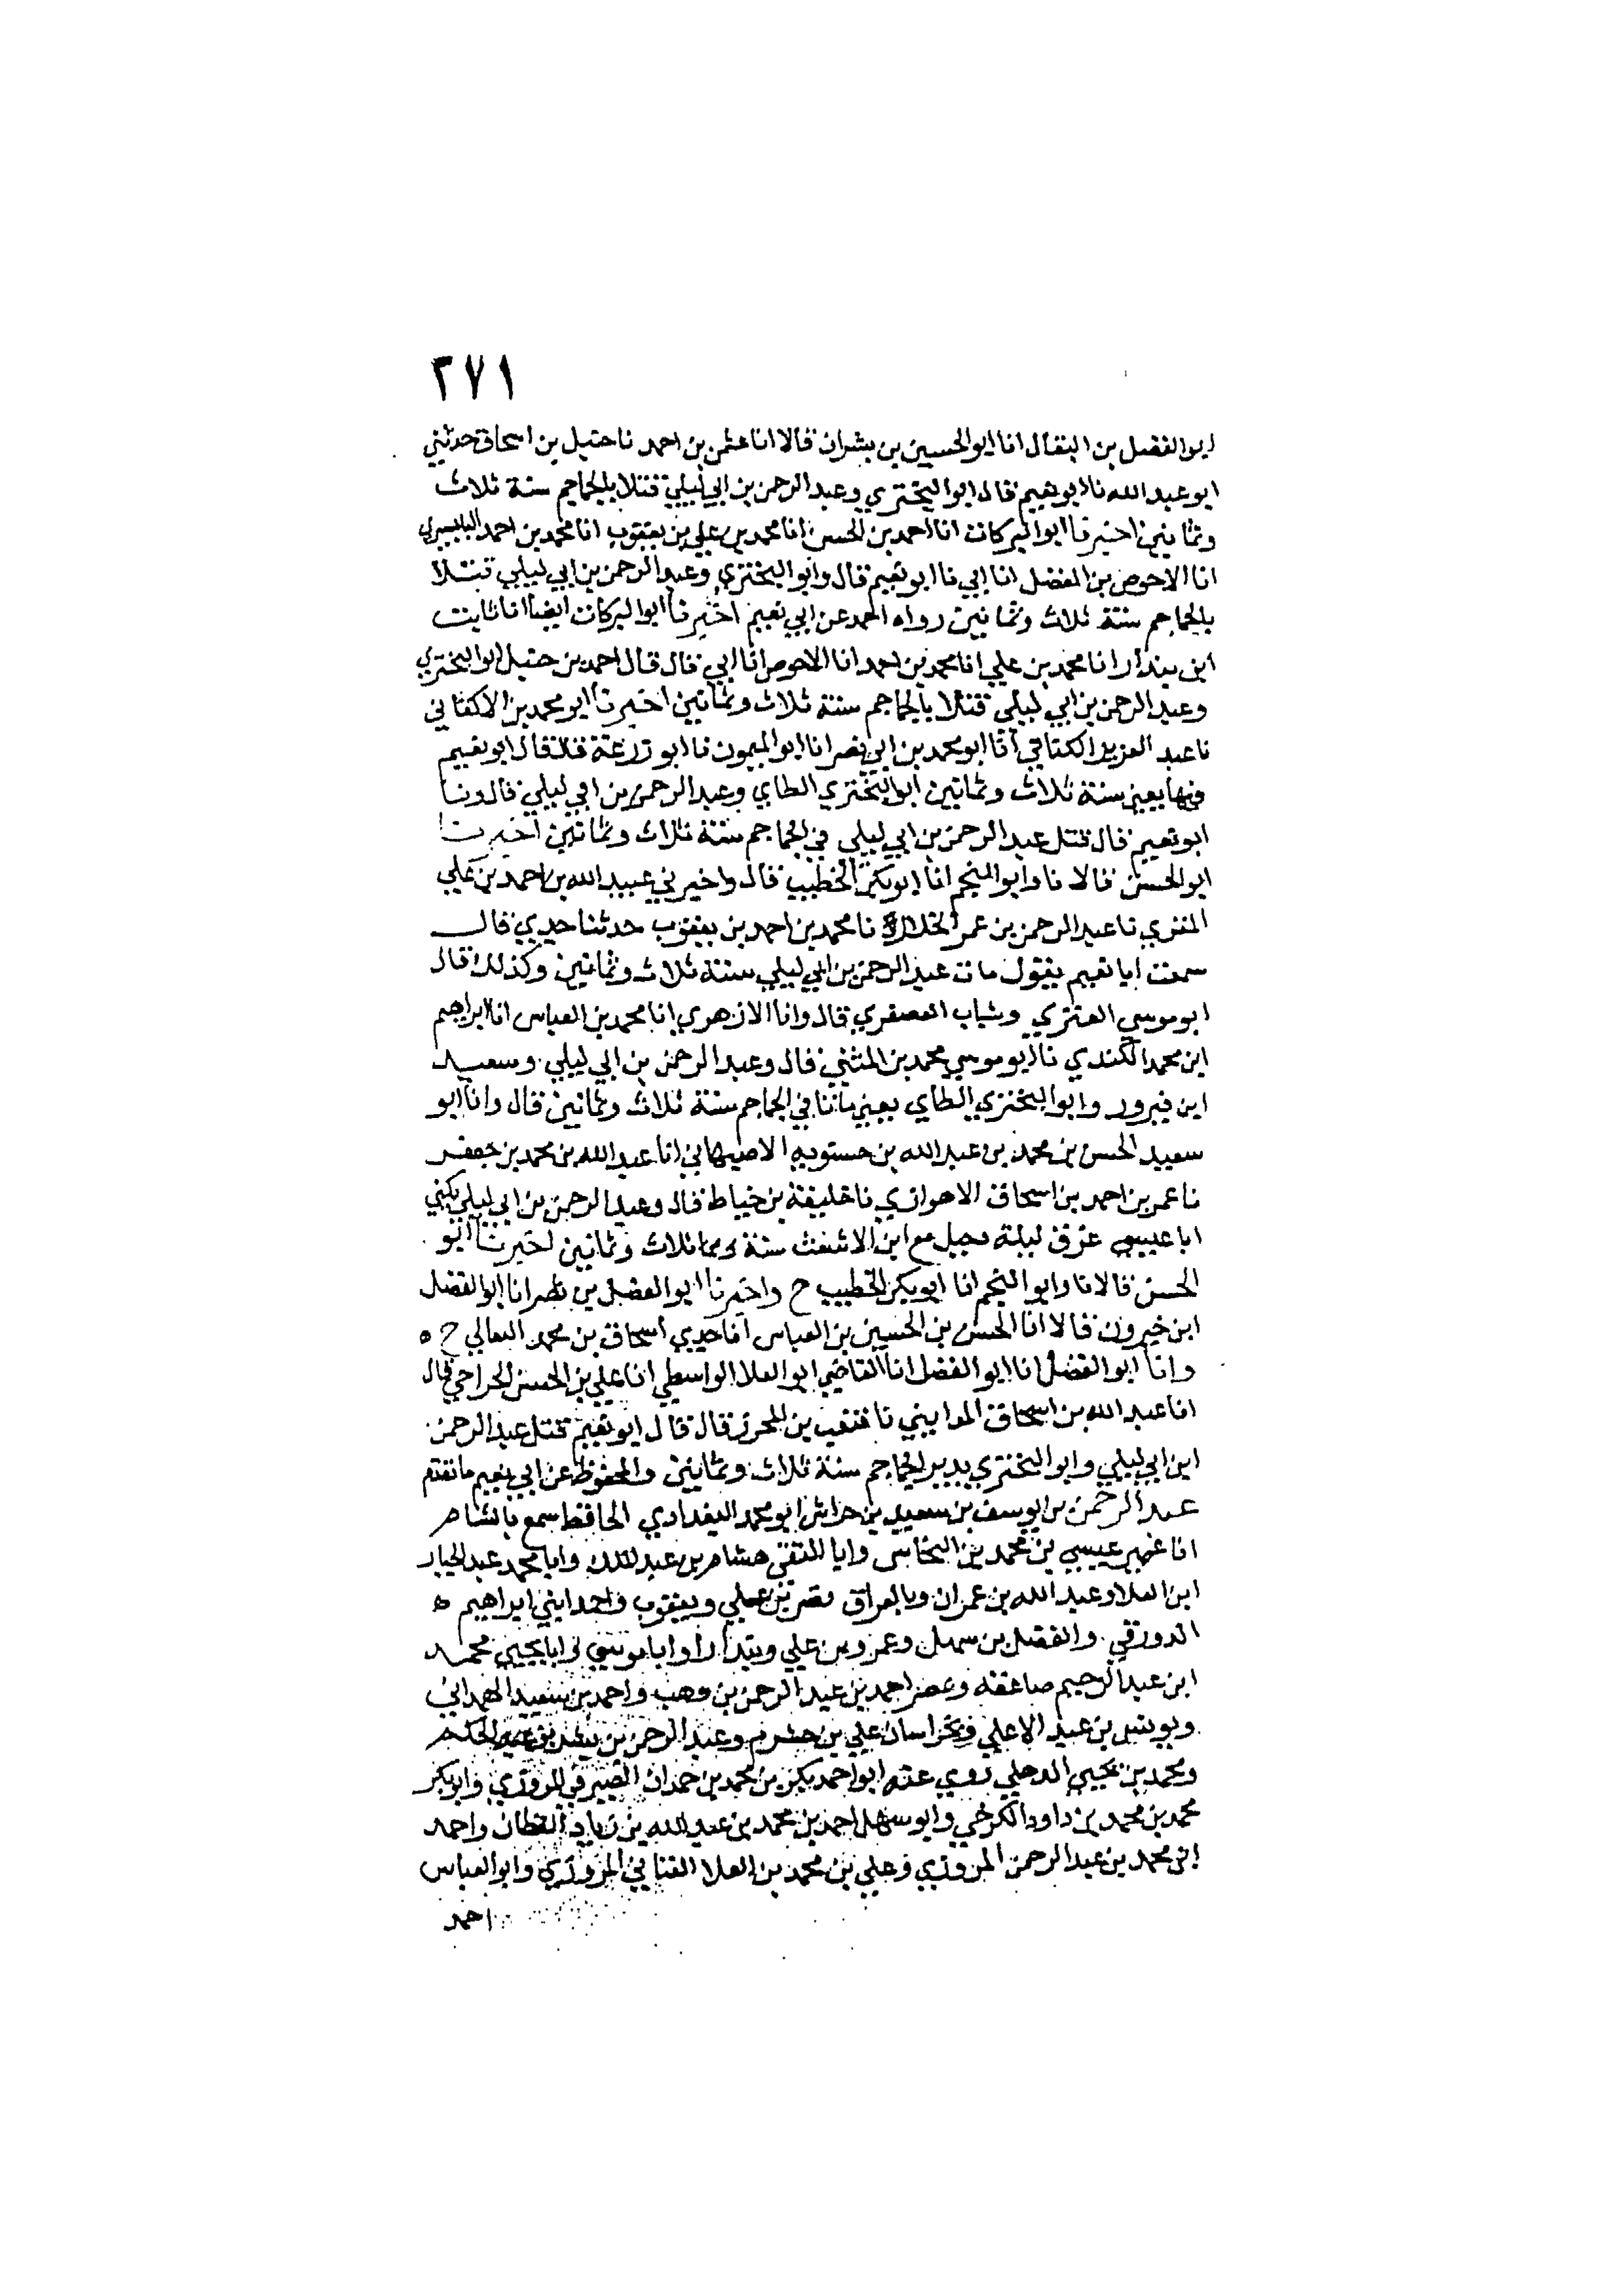 ٢٧١
ابو الفضل بن البقال انا ابو الحسين بن بشران قالا انا عثمن بن احمد نا حنبل بن اسحاق حدثني
ابو عبد الله نا ابو نعيم قال ابو البختري وعبد الرحمن بن ابي ليلي قتلا بالجماجم سنة ثلاث
وثمانين اخبرنا ابو البركات انا احمد بن الحسن انا محمد بن علي بن يعقوب انا محمد بن احمد البابسيري
انا الاحوص بن المفضل انا ابي نا ابو نعيم قال وابو البختري وعبد الرحمن بن ابي ليلي قتلا
بالجماجم سنة ثلاث وثمانين رواه احمد عن ابي نعيم اخبرنا ابو البركات ايضا انا ثابت
ابن بندار انا محمد بن علي انا محمد بن احمد انا الاحوص انا ابي قال قال احمد بن حنبل ابو البختري
وعبد الرحمن بن ابي ليلي قتلا بالجماجم سنة ثلاث وثمانين اخبرنا ابو محمد بن الاكفاني
نا عبد العزيز الكتاني انا ابو محمد بن ابي نصر انا ابو الميمون نا ابو زرعة قال قال ابو نعيم
فيها يعني سنة ثلاث وثمانين ابو البختري الطاي وعبد الرحمن بن ابي ليلي قال ونا
ابو نعيم قال قتل عبد الرحمن بن ابي ليلي في الجماجم سنة ثلاث وثمانين اخبرنا
ابو الحسن قالا نا وابو النجم انا ابو بكر الخطيب قال واخبرني عبيد الله بن احمد بن علي
المقري نا عبد الرحمن بن عمر الخلال نا محمد بن احمد بن يعقوب حدثنا جدي قال
سمعت ابا نعيم يقول مات عبد الرحمن بن ابي ليلي سنة ثلاث وثمانين وكذلك قال
ابو موسي العنزي وشباب العصفري قال وانا الازهري انا محمد بن العباس انا ابراهيم
ابن محمد الكندي نا ابو موسي محمد بن المثني قال وعبد الرحمن بن ابي ليلي وسعيد
ابن فيروز وابو البختري الطاي يعني ماتا في الجماجم سنة ثلاث وثمانين قال وانا ابو
سعيد الحسن بن محمد بن عبد الله بن حسنويه الاصبهاني انا عبد الله بن محمد بن جعفر
نا عمر بن احمد بن اسحاق الاهوازي نا خليفة بن خياط قال وعبد الرحمن بن ابي ليلي يكني
ابا عيسي غرق ليلة دجيل مع ابن الاشعث سنة ثلاث وثمانين اخبرنا ابو
الحسن قالا نا وابو النجم انا ابو بكر الخطيب ح واخبرنا ابو الفضل بن ناصر انا ابو الفضل
ابن خيرون قالا انا الحسن بن الحسين بن العباس انا جدي اسحاق بن محمد النعالي ح ه
وانا ابو الفضل انا ابو الفضل انا القاضي ابو العلا الواسطي انا علي بن الحسن الجراحي قال
انا عبد الله بن اسحاق المدايني نا قعنب بن المحرز قال قال ابو نعيم قتل عبد الرحمن
ابن ابي ليلي وابو البختري بدير الجماجم سنة ثلاث وثمانين والمحفوظ عن ابي نعيم ما تقدم
عبد الرحمن بن يوسف بن سعيد بن خراش ابو محمد البغدادي الحافظ سمع بالشام
ابا عمير عيسي بن محمد بن النحاس وابا التقي هشام بن عبد الملك وابا محمد عبد الجبار
ابن العلا وعبد الله بن عمران وبالعراق نصر بن علي ويعقوب واحمد ابني ابراهيم ه
الدورقي والفضل بن سهل وعمرو بن علي وبندارا وابا موسي وابا يحيي محمد
ابن عبد الرحيم صاعقة وبمصر احمد بن عبد الرحمن بن وهب واحمد بن سعيد الهمداني
ويونس بن عبد الاعلي وبخراسان علي بن خشرم وعبد الرحمن بن بشر بن الحكم
ومحمد بن يحيي الذهلي روي عنه ابو احمد بكر بن محمد بن حمدان الصيرفي المروزي وابو بكر
محمد بن محمد بن داود الكرجي وابو سهل احمد بن محمد بن عبد الله بن زياد القطان واحمد
ابن محمد بن عبد الرحمن المروزي وعلي بن محمد بن العلا المروزي وابو العباس
احمد